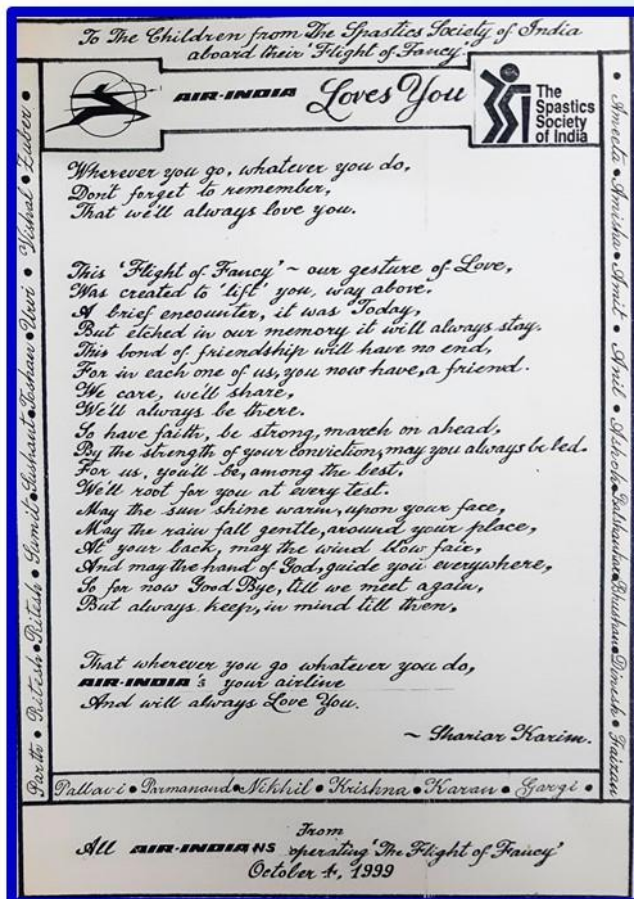 To The Children from The Spastics Society of India
aboard their 'Flight of Fancy'.
AIR-INDIA Loves You
The
Spastics
Society
of India
Wherever you go, whatever you do,
Don't forget to remember,
That we'll always love you.
This 'Flight of Fancy' ~ our gesture of Love,
Was created to 'lift' you, way above.
A brief encounter, it was Today,
But etched in our memory it will always stay.
This bond of friendship will have no end,
For in each one of us, you now have, a friend.
We care, we'll share,
We'll always be there.
So have faith, be strong, march on ahead,
By the strength of your conviction, may you always be led.
For us, you'll be, among the best.
We'll root for you at every test.
May the sun shine warm, upon your face,
May the rain fall gentle, around your place,
At your back, may the wind blow fair,
And may the hand of God, guide you everywhere,
So for now Good Bye, till we meet again,
But always keep, in mind till then,
That wherever you go whatever you do,
AIR-INDIA's your airline
And will always Love You.
~ Shariar Karim.
Parth • Ritesh • Ritesh • Sumit • Sushant • Toshan • Urvi • Vishal • Zuber •
• Ameeta • Amisha • Amit • Anil • Ashok • Balshankar • Bhushan • Dinesh • Faizan
Pallavi • Parmanand • Nikhil • Krishna • Karan • Gargi •
From
All AIR-INDIANS operating 'The Flight of Fancy'
October 4, 1999